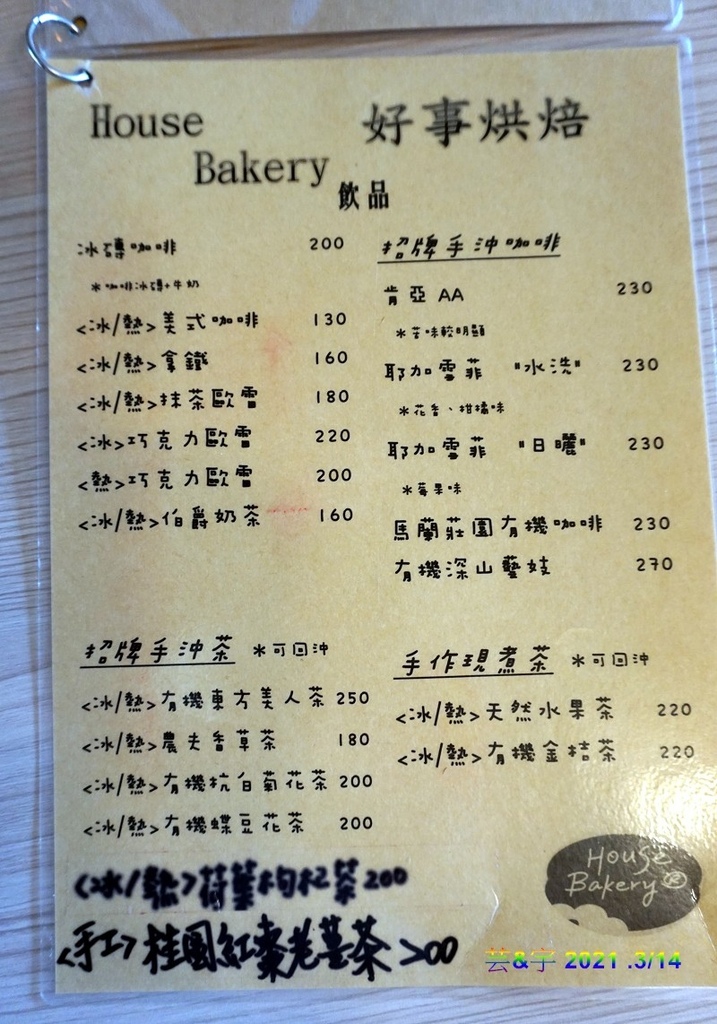 House 好事烘焙
Bakery
飲品
冰磚咖啡 200
*咖啡冰磚+牛奶
<冰/熱>美式咖啡 130
<冰/熱>拿鐵 160
<冰/熱>抹茶歐蕾 180
<冰>巧克力歐蕾 220
<熱>巧克力歐蕾 200
<冰/熱>伯爵奶茶 160
招牌手沖咖啡
肯亞 AA 230
*苦味較明顯
耶加雪菲 "水洗" 230
*花香、柑橘味
耶加雪菲 "日曬" 230
*莓果味
馬蘭莊園有機咖啡 230
有機深山藝妓 270
招牌手沖茶 *可回沖
<冰/熱>有機東方美人茶 250
<冰/熱>農夫香草茶 180
<冰/熱>有機杭白菊花茶 200
<冰/熱>有機蝶豆花茶 200
<冰/熱>荷葉枸杞茶 200
<手工>桂圓紅棗老薑茶 200
手作現煮茶 *可回沖
<冰/熱>天然水果茶 220
<冰/熱>有機金桔茶 220
House
Bakery®
芸&宇 2021 .3/14